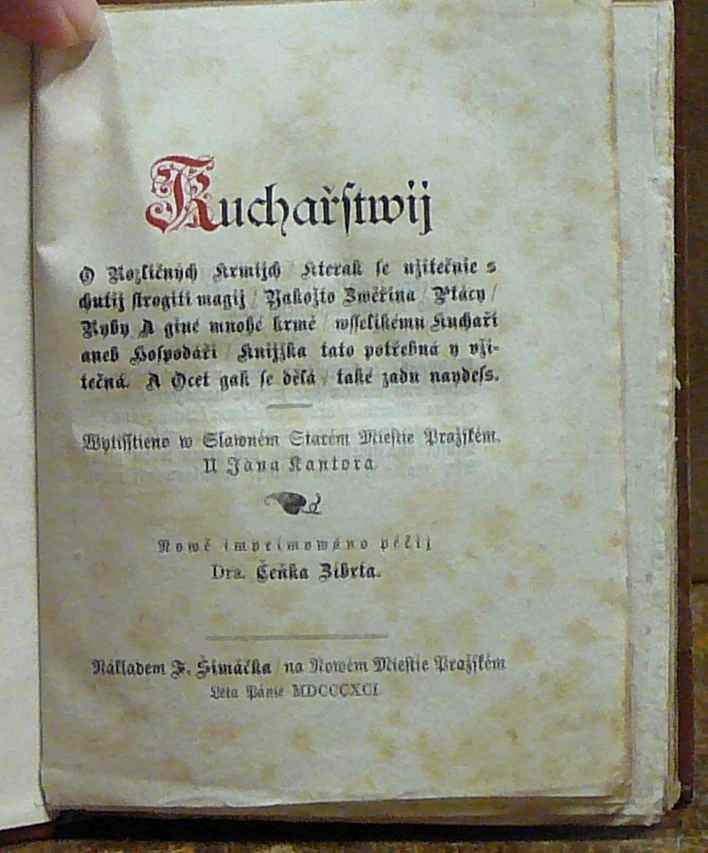 Kuchařſtwij
O Rozličných Krmijch / Kterak ſe užitečnie s
chutij ſtrogiti magij / Yakožto Zwěřina / Ptácy /
Ryby A giné mnohé krmě / wſſelikému Kuchaři
aneb Hoſpodáři / Knijžka tato potřebná y vži-
tečná. A Ocet gak ſe dělá / také zadu naydeſs.
Wytiſſtieno w Slawném Starém Mieſtie Pražſkém.
U Jana Kantora
Nowě imprimowáno péčij
Dra. Čeňka Zibrta.
Nákladem F. Šimáčka / na Nowém Mieſtie Pražſkém
Léta Pánie MDCCCXCI.